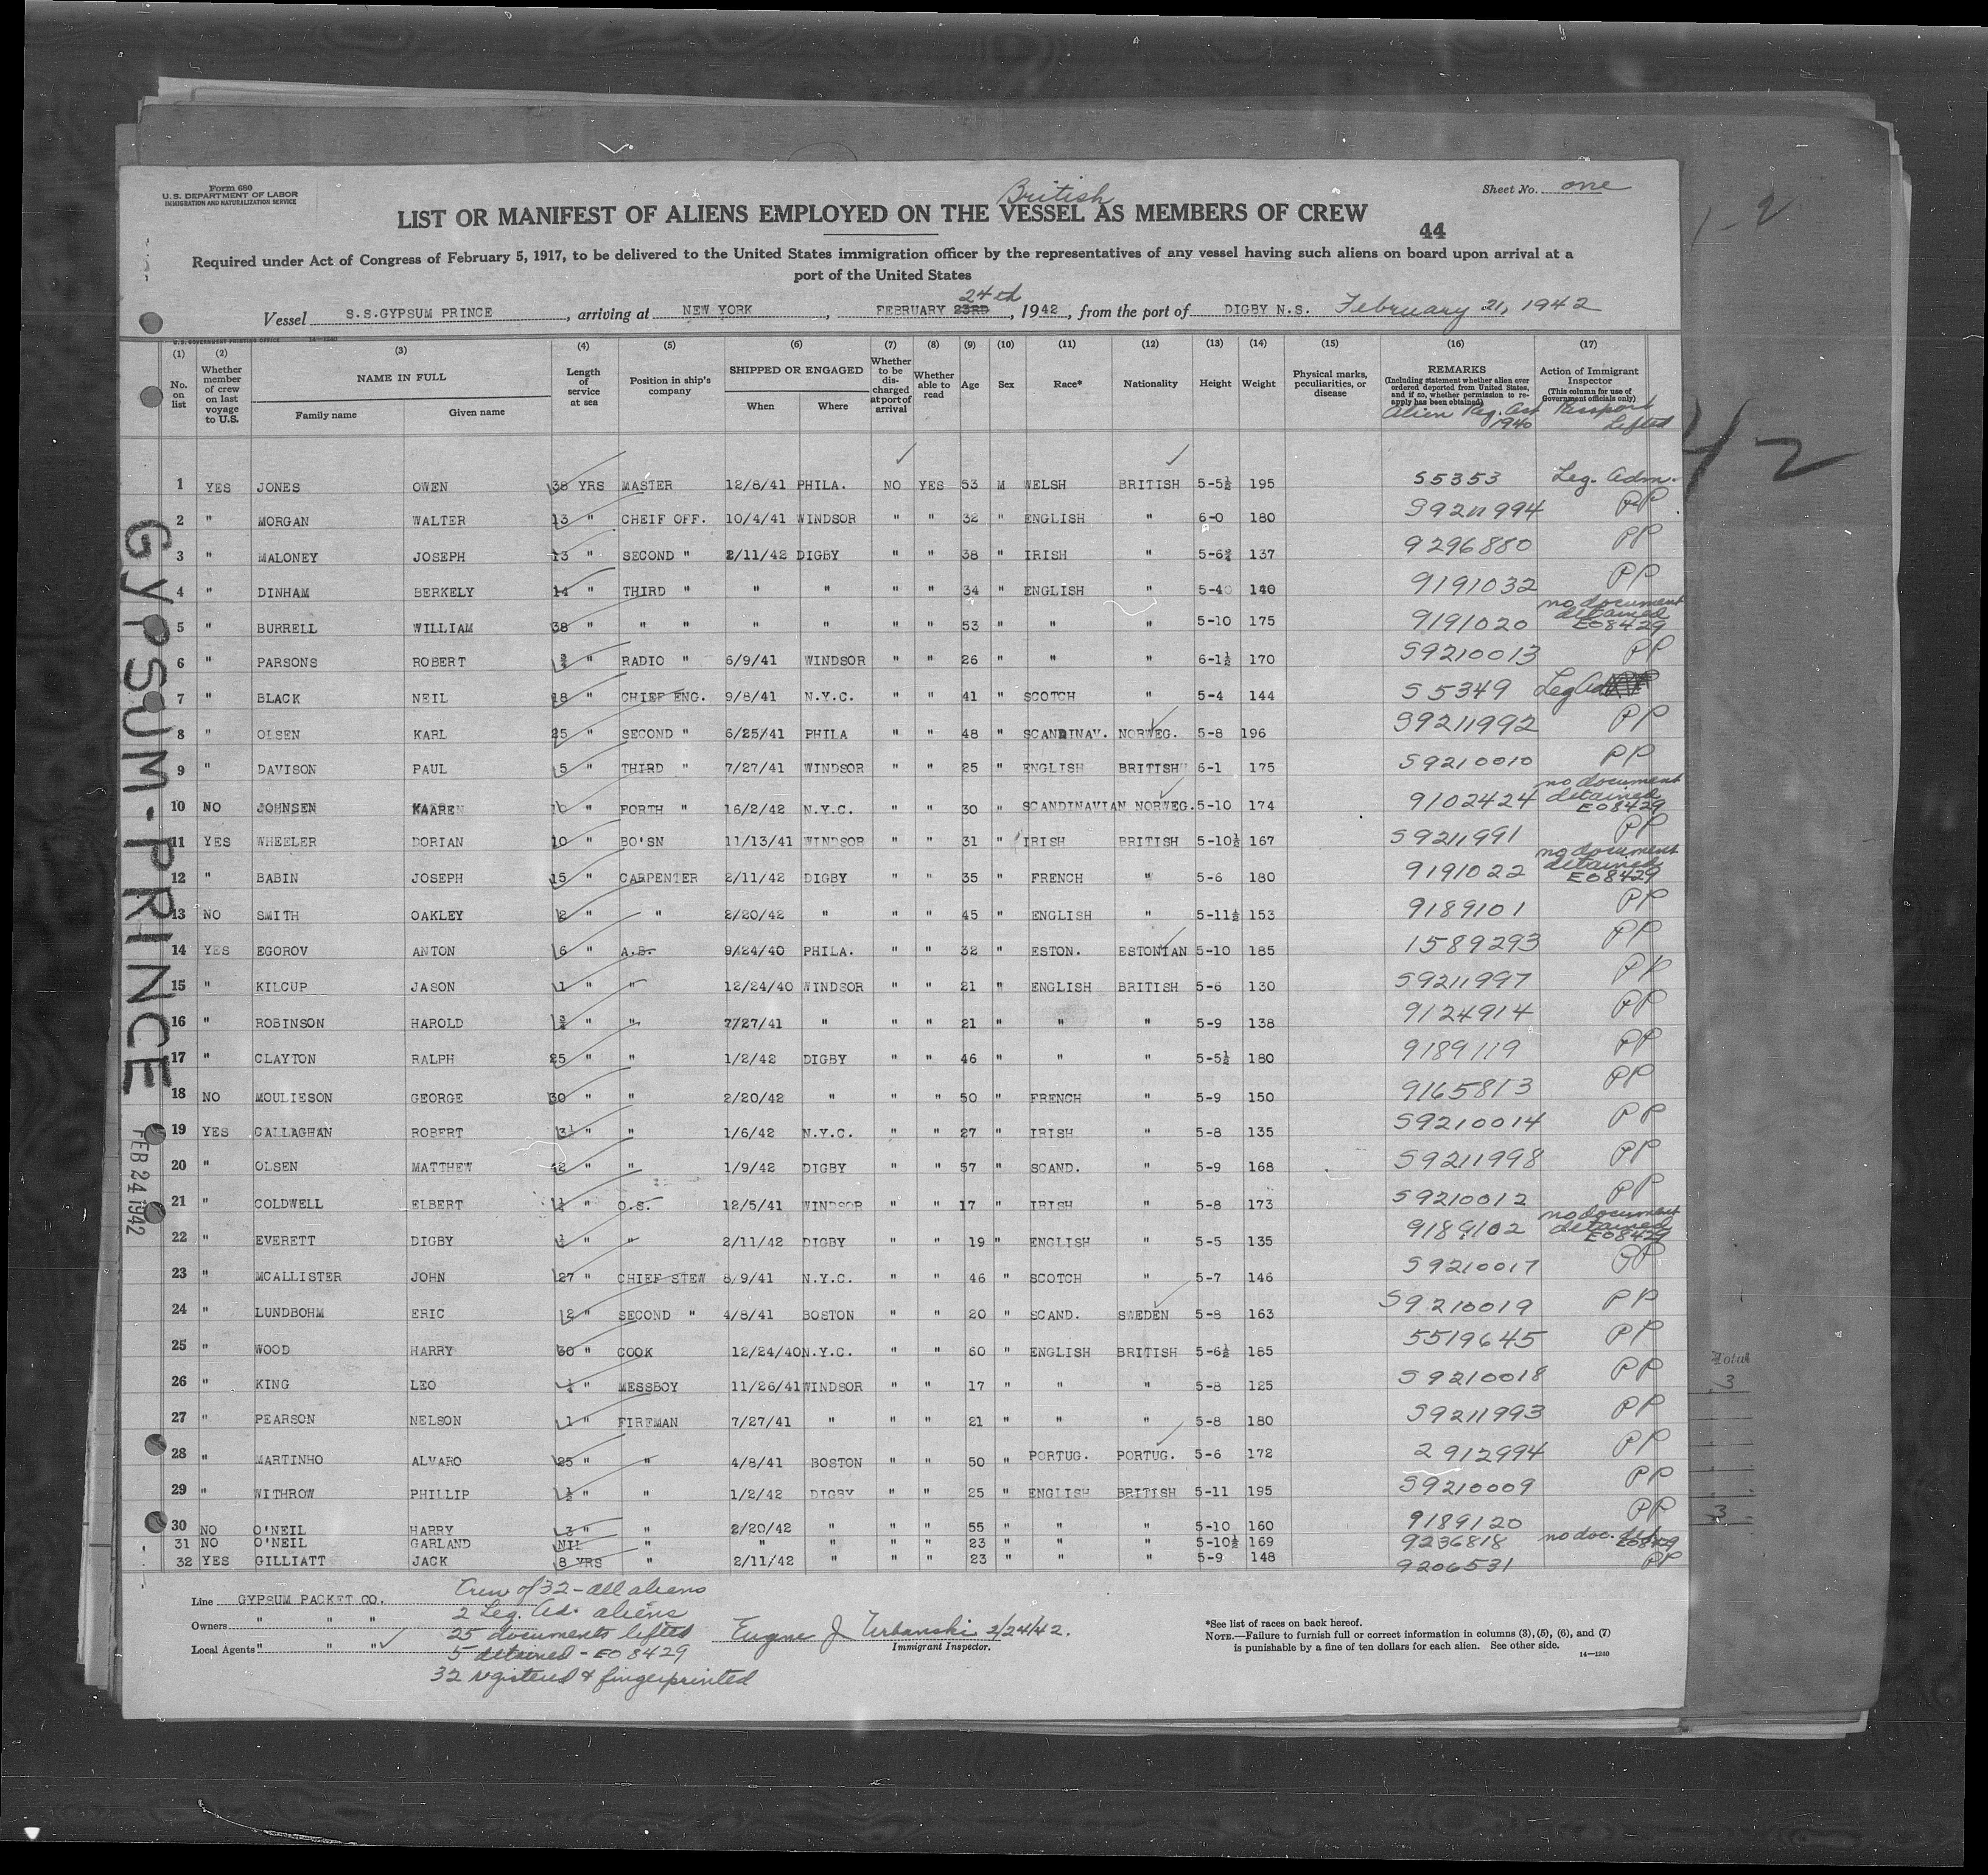 Form 680
U.S. DEPARTMENT OF LABOR
IMMIGRATION AND NATURALIZATION SERVICE
Sheet No. one
British
LIST OR MANIFEST OF ALIENS EMPLOYED ON THE VESSEL AS MEMBERS OF CREW
44
Required under Act of Congress of February 5, 1917, to be delivered to the United States immigration officer by the representatives of any vessel having such aliens on board upon arrival at a
port of the United States
24th
Vessel S.S.GYPSUM PRINCE, arriving at NEW YORK, FEBRUARY 23RD, 1942, from the port of DIGBY N.S. February 21, 1942
U.S. GOVERNMENT PRINTING OFFICE 14—1240
(1) No. on list
(2) Whether member of crew on last voyage to U.S.
(3) NAME IN FULL Family name Given name
(4) Length of service at sea
(5) Position in ship's company
(6) SHIPPED OR ENGAGED When Where
(7) Whether to be discharged at port of arrival
(8) Whether able to read
(9) Age
(10) Sex
(11) Race*
(12) Nationality
(13) Height
(14) Weight
(15) Physical marks, peculiarities, or disease
(16) REMARKS (Including statement whether alien ever ordered deported from United States, and if so, whether permission to reapply has been obtained) Alien Reg. Act 1940
(17) Action of Immigrant Inspector (This column for use of Government officials only) Passport Lifted
1 YES JONES OWEN 38 YRS MASTER 12/8/41 PHILA. NO YES 53 M WELSH BRITISH 5-5½ 195 S5353 Leg. Adm.
2 " MORGAN WALTER 13 " CHEIF OFF. 10/4/41 WINDSOR " " 32 " ENGLISH " 6-0 180 S9211994 PP
3 " MALONEY JOSEPH 13 " SECOND " 2/11/42 DIGBY " " 38 " IRISH " 5-6¾ 137 9296880 PP
4 " DINHAM BERKELY 14 " THIRD " " " " " 34 " ENGLISH " 5-4 140 9191032 PP
5 " BURRELL WILLIAM 38 " " " " " " " 53 " " " 5-10 175 9191020 no document detained EO8429
6 " PARSONS ROBERT ¾ " RADIO " 6/9/41 WINDSOR " " 26 " " " 6-1½ 170 S9210013 PP
7 " BLACK NEIL 18 " CHIEF ENG. 9/8/41 N.Y.C. " " 41 " SCOTCH " 5-4 144 S5349 Leg Ad
8 " OLSEN KARL 25 " SECOND " 6/25/41 PHILA " " 48 " SCANDINAV. NORWEG. 5-8 196 S9211992 PP
9 " DAVISON PAUL 5 " THIRD " 7/27/41 WINDSOR " " 25 " ENGLISH BRITISH 6-1 175 S9210010 PP
10 NO JOHNSEN KAAREN 10 " FORTH " 16/2/42 N.Y.C. " " 30 " SCANDINAVIAN NORWEG. 5-10 174 9102424 no document detained EO8429
11 YES WHEELER DORIAN 10 " BO'SN 11/13/41 WINDSOR " " 31 " IRISH BRITISH 5-10½ 167 S9211991 PP
12 " BABIN JOSEPH 15 " CARPENTER 2/11/42 DIGBY " " 35 " FRENCH " 5-6 180 9191022 no document detained EO8429
13 NO SMITH OAKLEY 2 " " 2/20/42 " " " 45 " ENGLISH " 5-11½ 153 9189101 PP
14 YES EGOROV ANTON 6 " A.B. 9/24/40 PHILA. " " 32 " ESTON. ESTONIAN 5-10 185 1589293 PP
15 " KILCUP JASON 1 " " 12/24/40 WINDSOR " " 21 " ENGLISH BRITISH 5-6 130 S9211997 PP
16 " ROBINSON HAROLD ¾ " " 7/27/41 " " " 21 " " " 5-9 138 9124914 PP
17 " CLAYTON RALPH 25 " " 1/2/42 DIGBY " " 46 " " " 5-5½ 180 9189119 PP
18 NO MOULIESON GEORGE 30 " " 2/20/42 " " " 50 " FRENCH " 5-9 150 9165813 PP
19 YES CALLAGHAN ROBERT 3½ " " 1/6/42 N.Y.C. " " 27 " IRISH " 5-8 135 S9210014 PP
20 " OLSEN MATTHEW 42 " " 1/9/42 DIGBY " " 57 " SCAND. " 5-9 168 S9211998 PP
21 " COLDWELL ELBERT " O.S. 12/5/41 WINDSOR " " 17 " IRISH " 5-8 173 S9210012 PP
22 " EVERETT DIGBY " " 2/11/42 DIGBY " " 19 " ENGLISH " 5-5 135 9189102 no document detained EO8429
23 " MCALLISTER JOHN 27 " CHIEF STEW 8/9/41 N.Y.C. " " 46 " SCOTCH " 5-7 146 S9210017 PP
24 " LUNDBOHM ERIC 2 " SECOND " 4/8/41 BOSTON " " 20 " SCAND. SWEDEN 5-8 163 S9210019 PP
25 " WOOD HARRY 30 " COOK 12/24/40 N.Y.C. " " 60 " ENGLISH BRITISH 5-6½ 185 5519645 PP
26 " KING LEO ¼ " MESSBOY 11/26/41 WINDSOR " " 17 " " " 5-8 125 S9210018 PP
27 " PEARSON NELSON 1 " FIREMAN 7/27/41 " " " 21 " " " 5-8 180 S9211993 PP
28 " MARTINHO ALVARO 25 " " 4/8/41 BOSTON " " 50 " PORTUG. PORTUG. 5-6 172 2912994 PP
29 " WITHROW PHILLIP ½ " " 1/2/42 DIGBY " " 25 " ENGLISH BRITISH 5-11 195 S9210009 PP
30 NO O'NEIL HARRY 3 " " 2/20/42 " " " 55 " " " 5-10 160 9189120 PP
31 NO O'NEIL GARLAND NIL " " " " " 23 " " " 5-10½ 169 9236818 no doc. det. EO8429
32 YES GILLIATT JACK 8 YRS " 2/11/42 " " " 23 " " " 5-9 148 9206531 PP
GYPSUM-PRINCE
FEB 24 1942
1-2
42
Total
3
3
Line GYPSUM PACKET CO.
Owners " " "
Local Agents " " "
Crew of 32 - all aliens
2 Leg. Ad. aliens
25 documents lifted
5 detained - EO 8429
32 registered & fingerprinted
Eugene J Urbanski 2/24/42.
Immigrant Inspector.
*See list of races on back hereof.
NOTE.—Failure to furnish full or correct information in columns (3), (5), (6), and (7)
is punishable by a fine of ten dollars for each alien. See other side.
14—1240